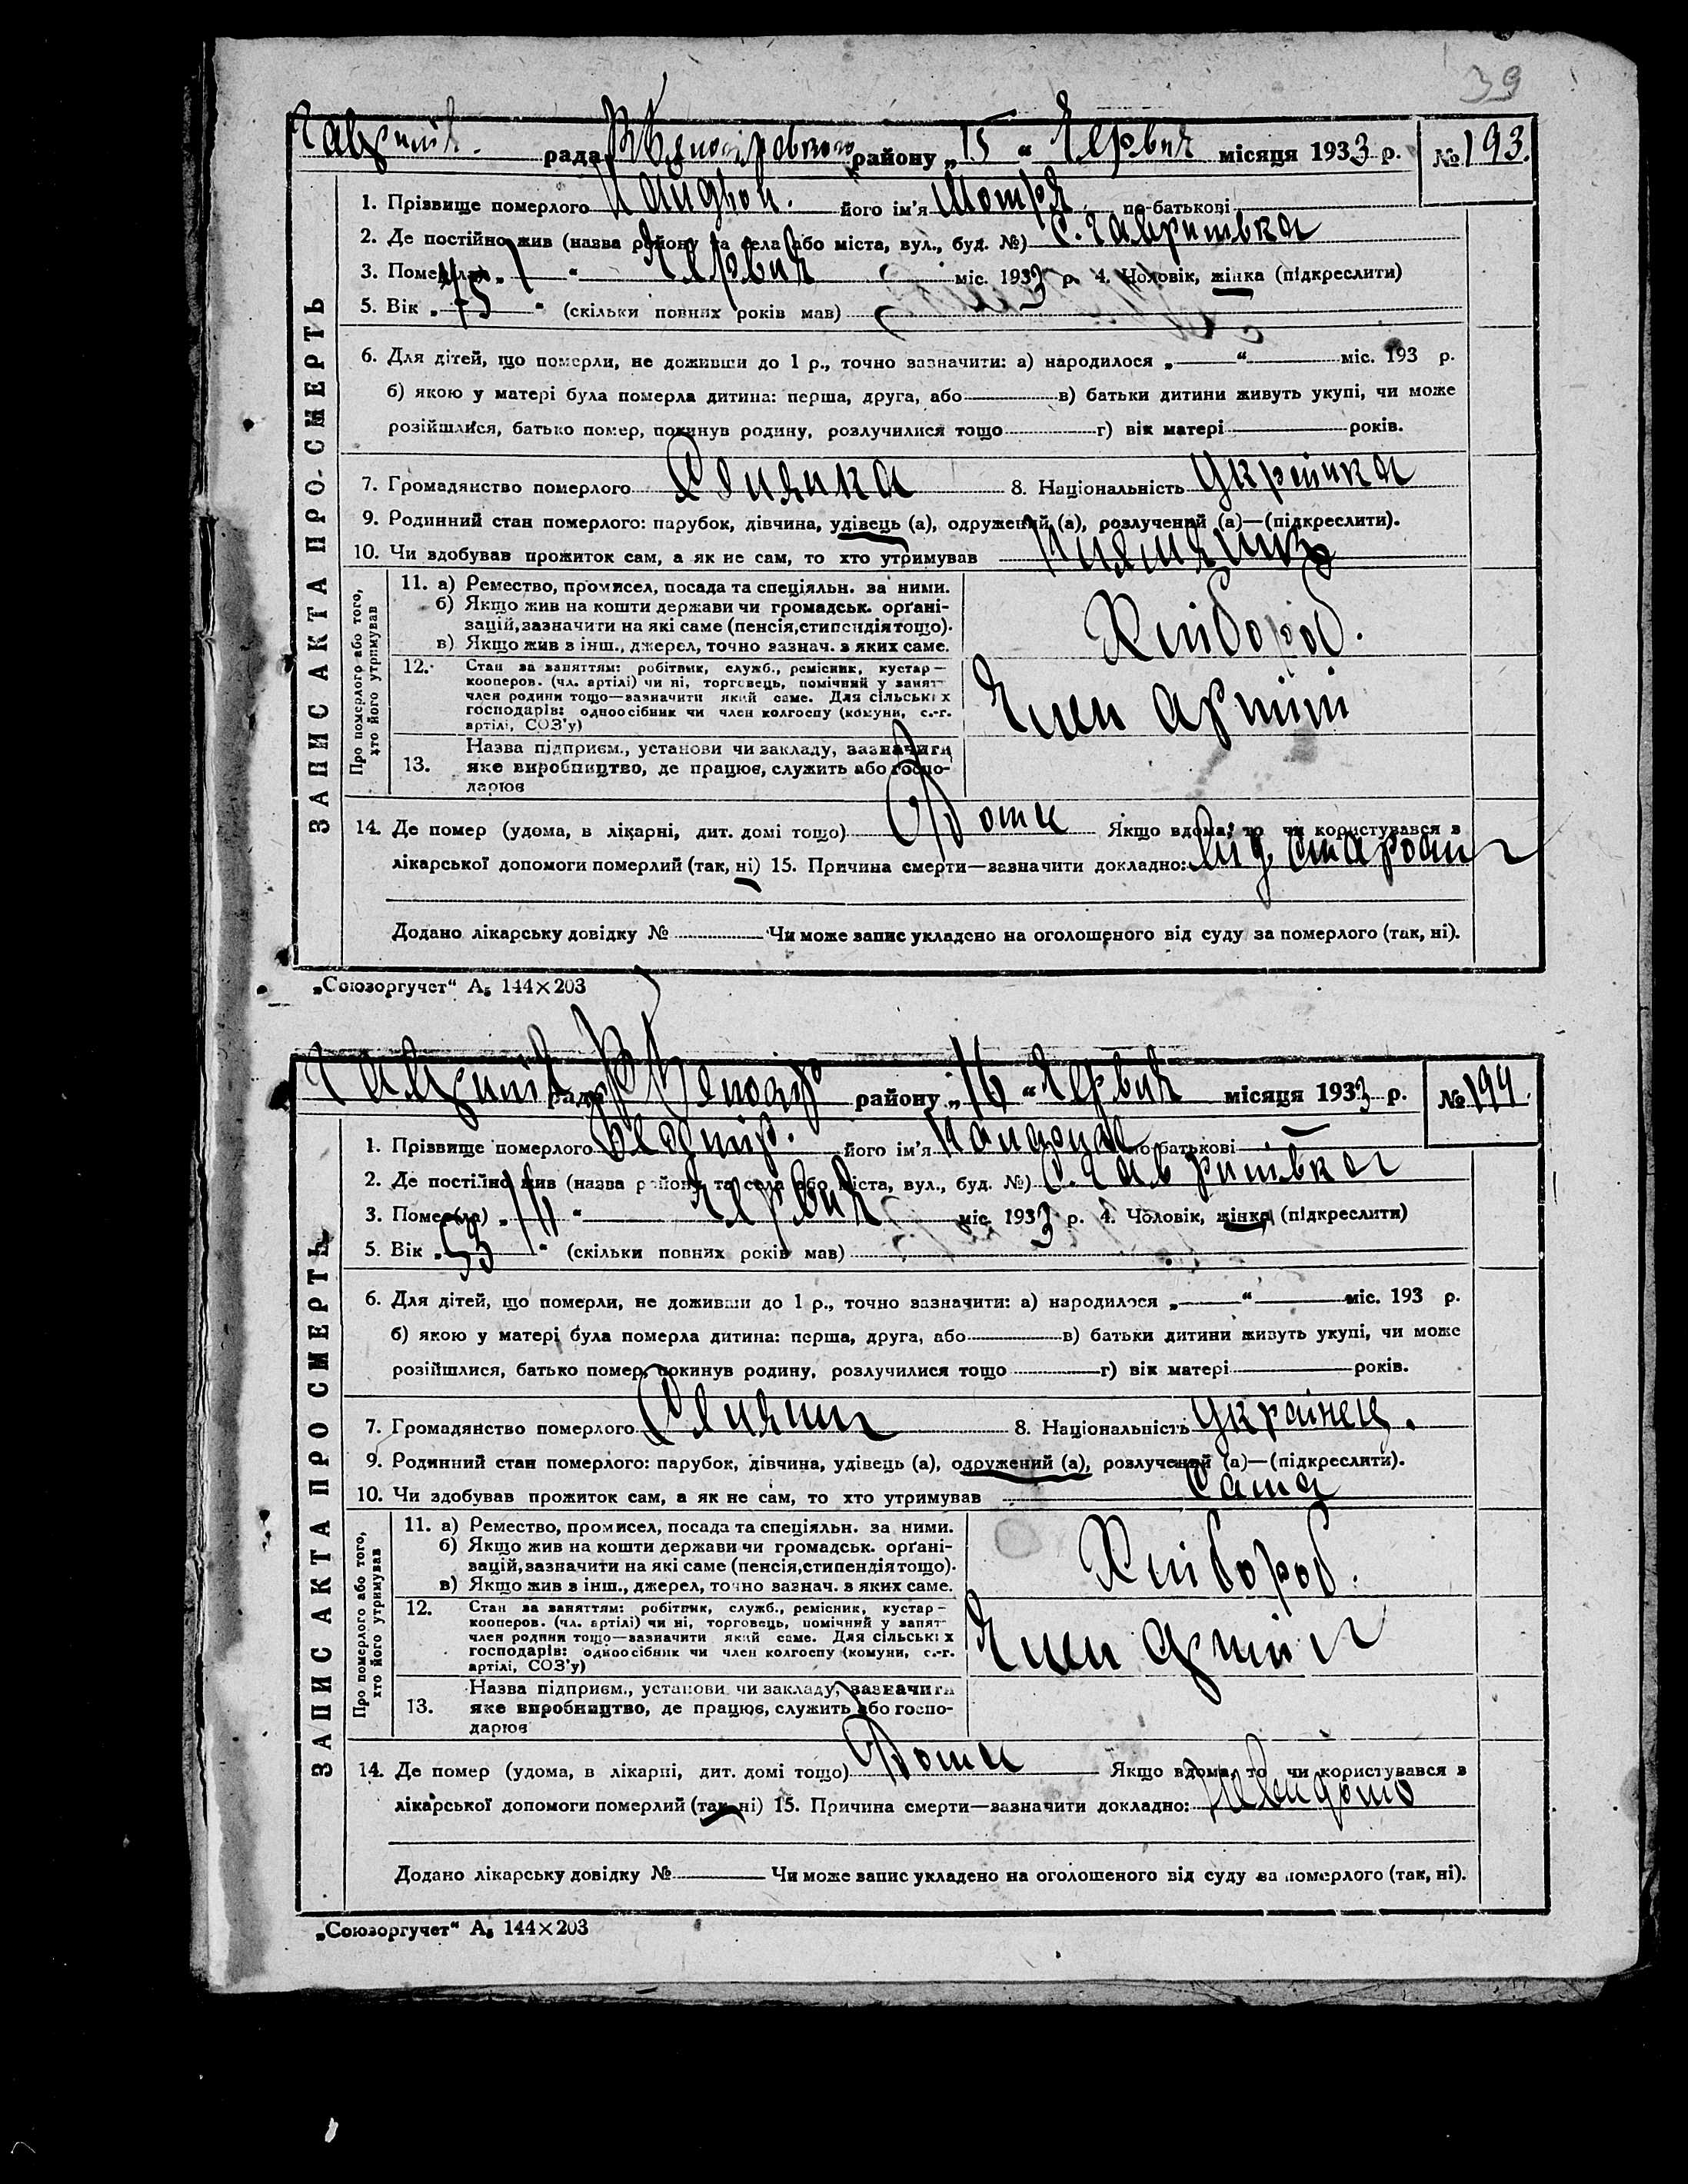 39
Гавриш. рада В Білозірського району „15“ Червня місяця 1933 р. № 193.
ЗАПИС АКТА ПРО СМЕРТЬ
1. Прізвище померлого його ім'я Мотря по-батькові
2. Де постійно жив (назва району та села або міста, вул., буд. №) С. Гавришівка
3. Помер(ла) „ “ Червня міс. 1933 р. 4. Чоловік, жінка (підкреслити)
5. Вік „75“ (скільки повних років мав)
6. Для дітей, що померли, не доживши до 1 р., точно зазначити: а) народилося „ “ міс. 193 р.
б) якою у матері була померла дитина: перша, друга, або в) батьки дитини живуть укупі, чи може
розійшлися, батько помер, покинув родину, розлучилися тощо г) вік матері років.
7. Громадянство померлого Селянка 8. Національність Українка
9. Родинний стан померлого: парубок, дівчина, удівець (а), одружений (а), розлучений (а)—(підкреслити).
10. Чи здобував прожиток сам, а як не сам, то хто утримував
Про померлого або того, хто його утримував
11. а) Ремество, промисел, посада та спеціяльн. за ними.
б) Якщо жив на кошти держави чи громадськ. органі-
зацій, зазначити на які саме (пенсія, стипендія тощо).
в) Якщо жив з інш., джерел, точно зазнач. з яких саме.
Хлібороб.
12. Стан за заняттям: робітник, служб., ремісник, кустар—
кооперов. (чл. артілі) чи ні, торговець, помічний у занят
член родини тощо—зазначити який саме. Для сільських
господарів: одноосібник чи член колгоспу (комуни, с.-г.
артілі, СОЗ'у)
Член артілі
13. Назва підприєм., установи чи закладу, зазначити
яке виробництво, де працює, служить або госпо-
дарює
14. Де помер (удома, в лікарні, дит. домі тощо) Дома Якщо вдома, то чи користувався з
лікарської допомоги померлий (так, ні) 15. Причина смерти—зазначити докладно: Від старости
Додано лікарську довідку № Чи може запис укладено на оголошеного від суду за померлого (так, ні).
„Союзоргучет“ А₅ 144×203
рада району „16“ Червня місяця 1933 р. № 194.
ЗАПИС АКТА ПРО СМЕРТЬ
1. Прізвище померлого його ім'я по-батькові —
2. Де постійно жив (назва району та села або міста, вул., буд. №) С. Гавришівка
3. Помер(ла) „ “ Червня міс. 1933 р. 4. Чоловік, жінка (підкреслити)
5. Вік „53“ (скільки повних років мав)
6. Для дітей, що померли, не доживши до 1 р., точно зазначити: а) народилося „ “ міс. 193 р.
б) якою у матері була померла дитина: перша, друга, або в) батьки дитини живуть укупі, чи може
розійшлися, батько помер, покинув родину, розлучилися тощо г) вік матері років.
7. Громадянство померлого 8. Національність Українец.
9. Родинний стан померлого: парубок, дівчина, удівець (а), одружений (а), розлучений (а)—(підкреслити).
10. Чи здобував прожиток сам, а як не сам, то хто утримував Сама
Про померлого або того, хто його утримував
11. а) Ремество, промисел, посада та спеціяльн. за ними.
б) Якщо жив на кошти держави чи громадськ. органі-
зацій, зазначити на які саме (пенсія, стипендія тощо).
в) Якщо жив з інш., джерел, точно зазнач. з яких саме.
Хлібороб.
12. Стан за заняттям: робітник, служб., ремісник, кустар—
кооперов. (чл. артілі) чи ні, торговець, помічний у занят
член родини тощо—зазначити який саме. Для сільських
господарів: одноосібник чи член колгоспу (комуни, с.-г.
артілі, СОЗ'у)
Член артіли
13. Назва підприєм., установи чи закладу, зазначити
яке виробництво, де працює, служить або госпо-
дарює
14. Де помер (удома, в лікарні, дит. домі тощо) Дома Якщо вдома, то чи користувався з
лікарської допомоги померлий (так, ні) 15. Причина смерти—зазначити докладно: Невидомо
Додано лікарську довідку № Чи може запис укладено на оголошеного від суду за померлого (так, ні).
„Союзоргучет“ А₅ 144×203